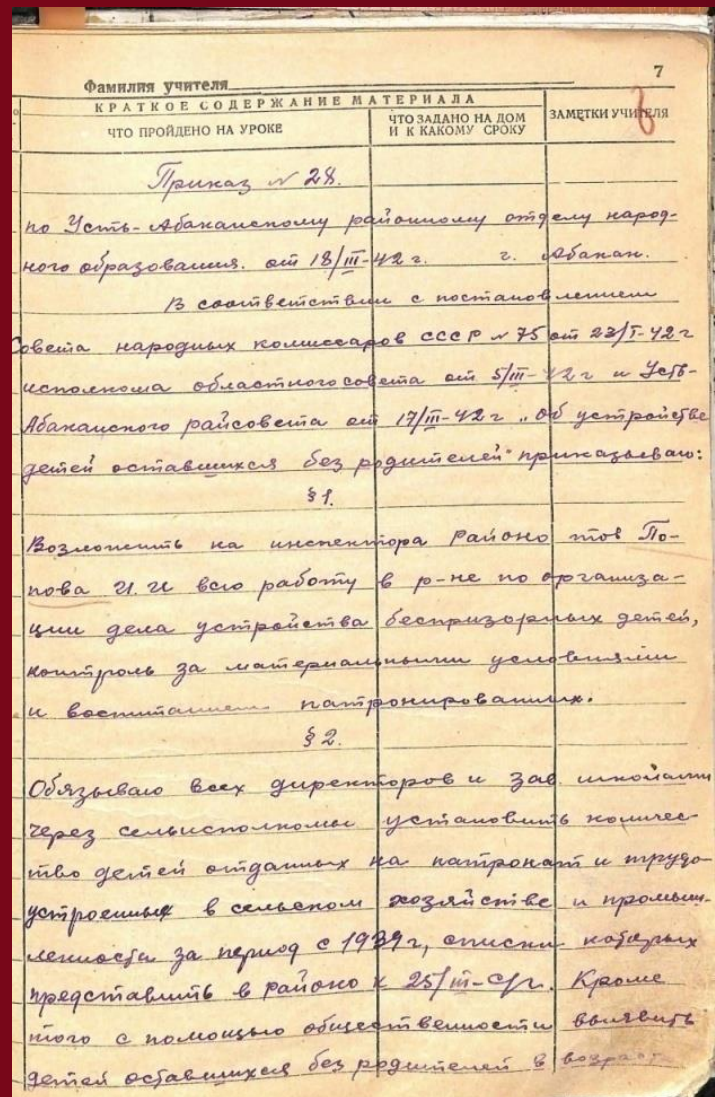 7
Фамилия учителя
КРАТКОЕ СОДЕРЖАНИЕ МАТЕРИАЛА
ЧТО ПРОЙДЕНО НА УРОКЕ
ЧТО ЗАДАНО НА ДОМ
И К КАКОМУ СРОКУ
ЗАМЕТКИ УЧИТЕЛЯ
Приказ № 28.
по Усть-Абаканскому районному отделу народ-
ного образования. от 18/III-42 г. г. Абакан.
В соответствии с постановлением
Совета народных комиссаров СССР № 75 от 23/I-42 г
исполкома областного совета от 5/III-42 г и Усть-
Абаканского райсовета от 17/III-42 г „об устройстве
детей оставшихся без родителей" приказываю:
§ 1.
Возложить на инспектора районо тов По-
пова И. И всю работу в р-не по организа-
ции дела устройства беспризорных детей,
контроль за материальными условиями
и воспитанием патронированных.
§ 2.
Обязываю всех директоров и зав. школами
через сельисполкомы установить количес-
тво детей отданных на патронат и трудо
устроенных в сельском хозяйстве и промыш-
ленности за период с 1939 г, списки которых
представить в районо к 25/III-с/г. Кроме
того с помощью общественности выявить
детей оставшихся без родителей в возраст